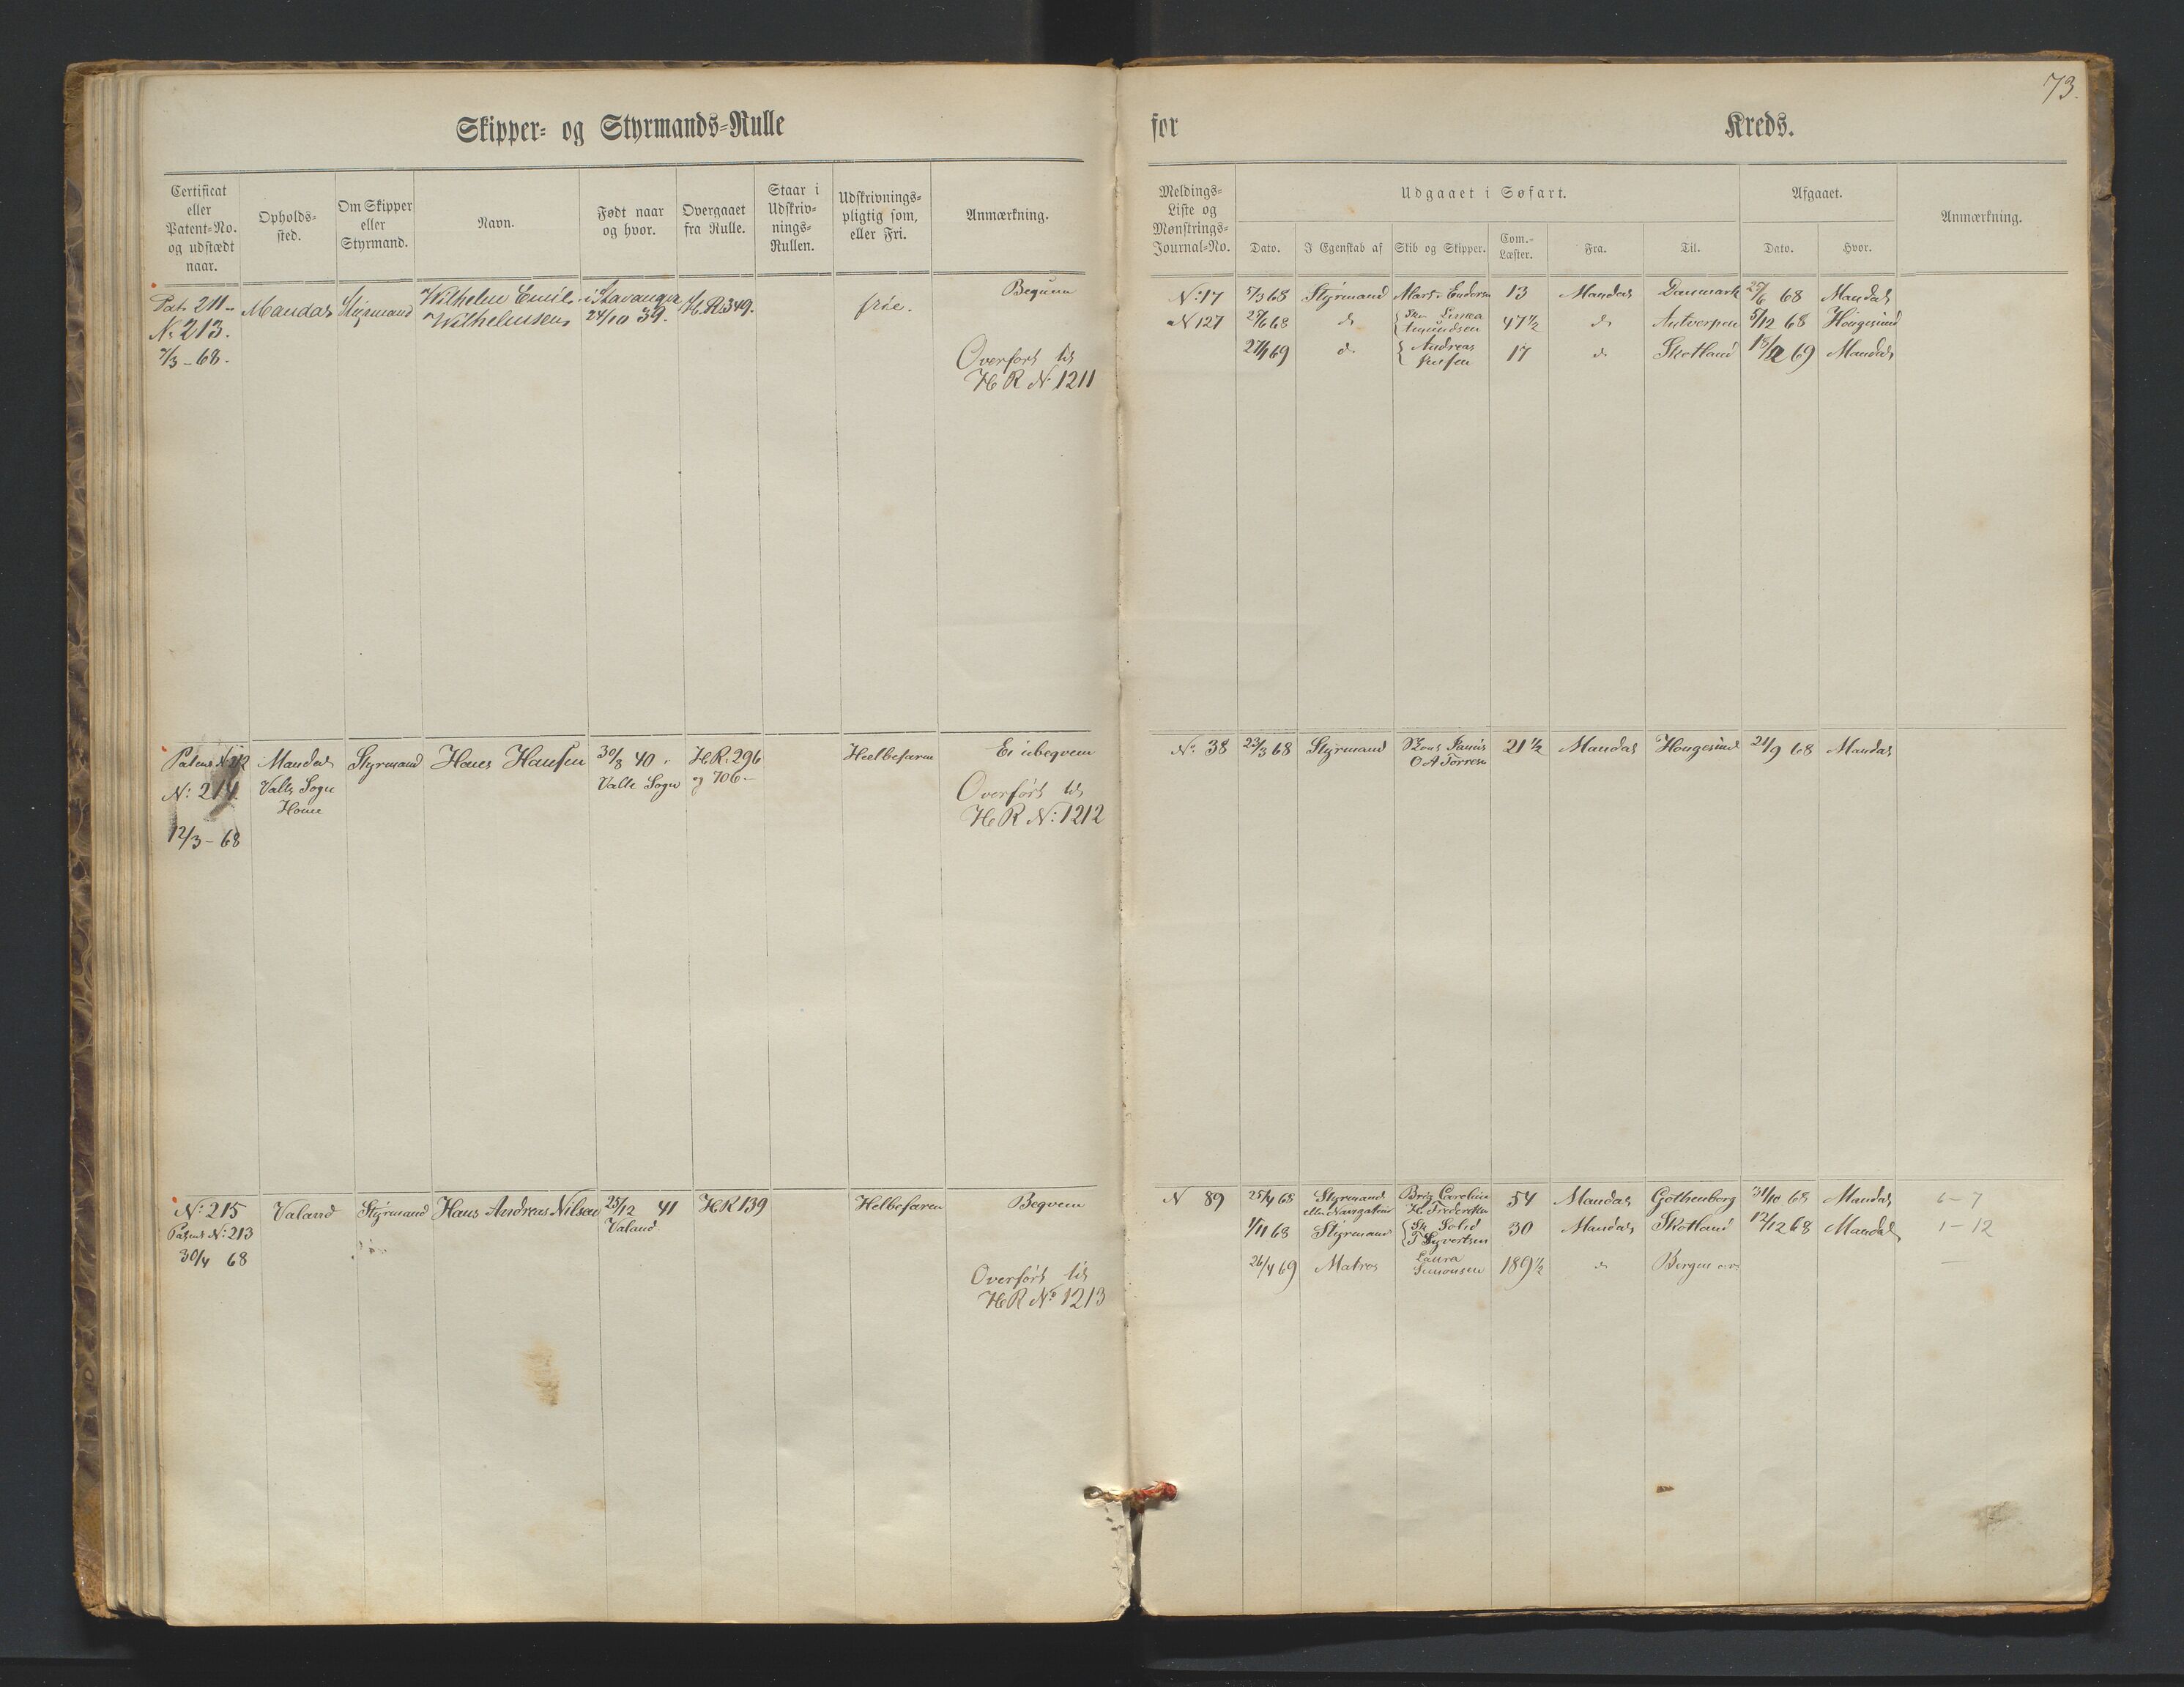 73.
Skipper- og Styrmands-Rulle for Kreds.
Certificat eller Patent-No. og udstædt naar.
Opholds-sted.
Om Skipper eller Styrmand.
Navn.
Født naar og hvor.
Overgaaet fra Rulle.
Staar i Udskriv-nings-Rullen.
Udskrivnings-pligtig som, eller Fri.
Anmærkning.
Meldings-Liste og Mønstrings-Journal-No.
Udgaaet i Søfart.
Dato.
I Egenskab af
Skib og Skipper.
Com.-Læster.
Fra.
Til.
Afgaaet.
Dato.
Hvor.
Anmærkning.
Pat. 211
No 213.
7/3-68.
Mandal
Styrmand
Wilhelm Emil
Wilhelmsen
i Stavanger
24/10 39.
H.R. 349.
frie.
Begvem
Overført til
H R No 1211
No: 17 5/3 68 Styrmand 13 Mandal Danmark 68 Mandal
No 127 68 do Amundsen 47 1/2 do Antverpen 5/12 68 Hougesund
69 do Andreas 17 do Skotland 69 Mandal
Patent No 212
No: 214
12/3-68
Mandal
Valle Sogn
Home
Styrmand
Hans Hansen
30/8 40
Valle Sogn
H.R. 296
og 706
Heelbefaren
Ei ubegvem
Overført til
H R No: 1212
No. 38 23/3 68 Styrmand 21 1/2 Mandal Hougesund 21/9 68 Mandal
No: 215
Patent No: 213
30/4 68
Valand
Styrmand
Hans Andreas Nilsen
25/12 41
Valand
HR 139
Helbefaren
Begvem
Overført til
H R No 1213
N 89 25/4 68 Styrmand Brig Caroline 54 Mandal Gothenborg 31/10 68 Mandal 6-7
1/11 68 Styrmand Solid 30 Mandal Skotland 12/12 68 Mandal 1-12
T Syvertsen
26/4 69 Matros Laura 189 1/2 do Bergen
Simonsen